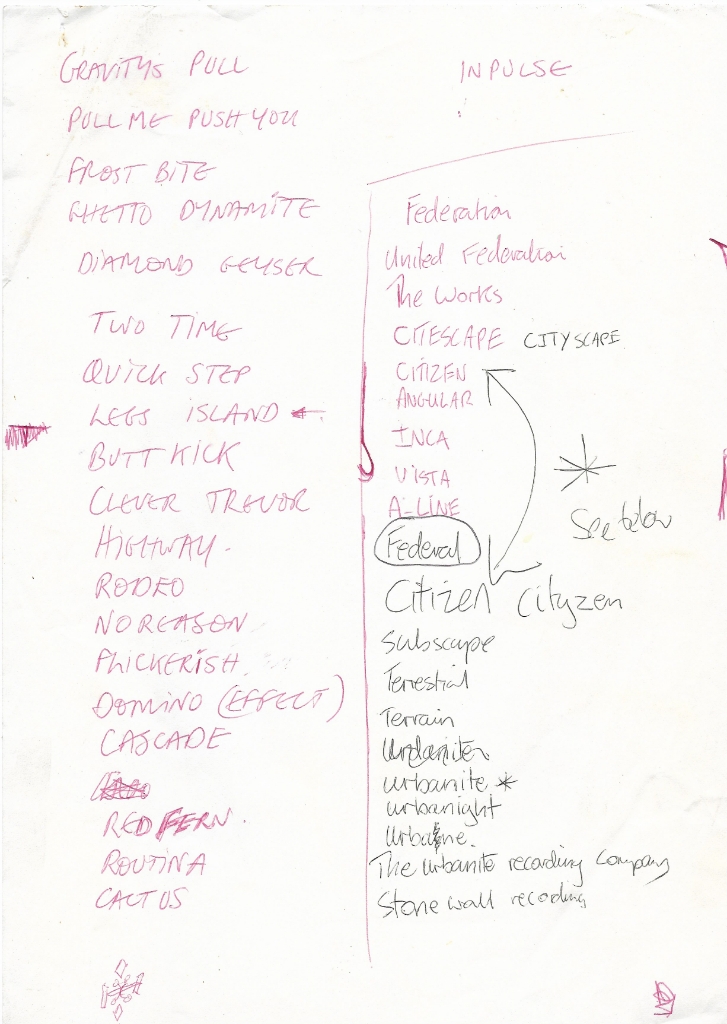 GRAVITYS PULL
PULL ME PUSH YOU
FROST BITE
GHETTO DYNAMITE
DIAMOND GEYSER
TWO TIME
QUICK STEP
LEGS ISLAND
BUTT KICK
CLEVER TREVOR
HIGHWAY.
RODEO
NO REASON
FLICKERISH
DOMINO (EFFECT)
CASCADE
RED FERN.
ROUTINA
CACTUS
INPULSE
Federation
United Federation
The Works
CITESCAPE CITYSCAPE
CITIZEN
ANGULAR
INCA
VISTA
A-LINE
See below
Federal
Citizen Cityzen
Subscape
Terrestial
Terrain
urbanite *
urbanight
The urbanite recording Company
Stone wall recording